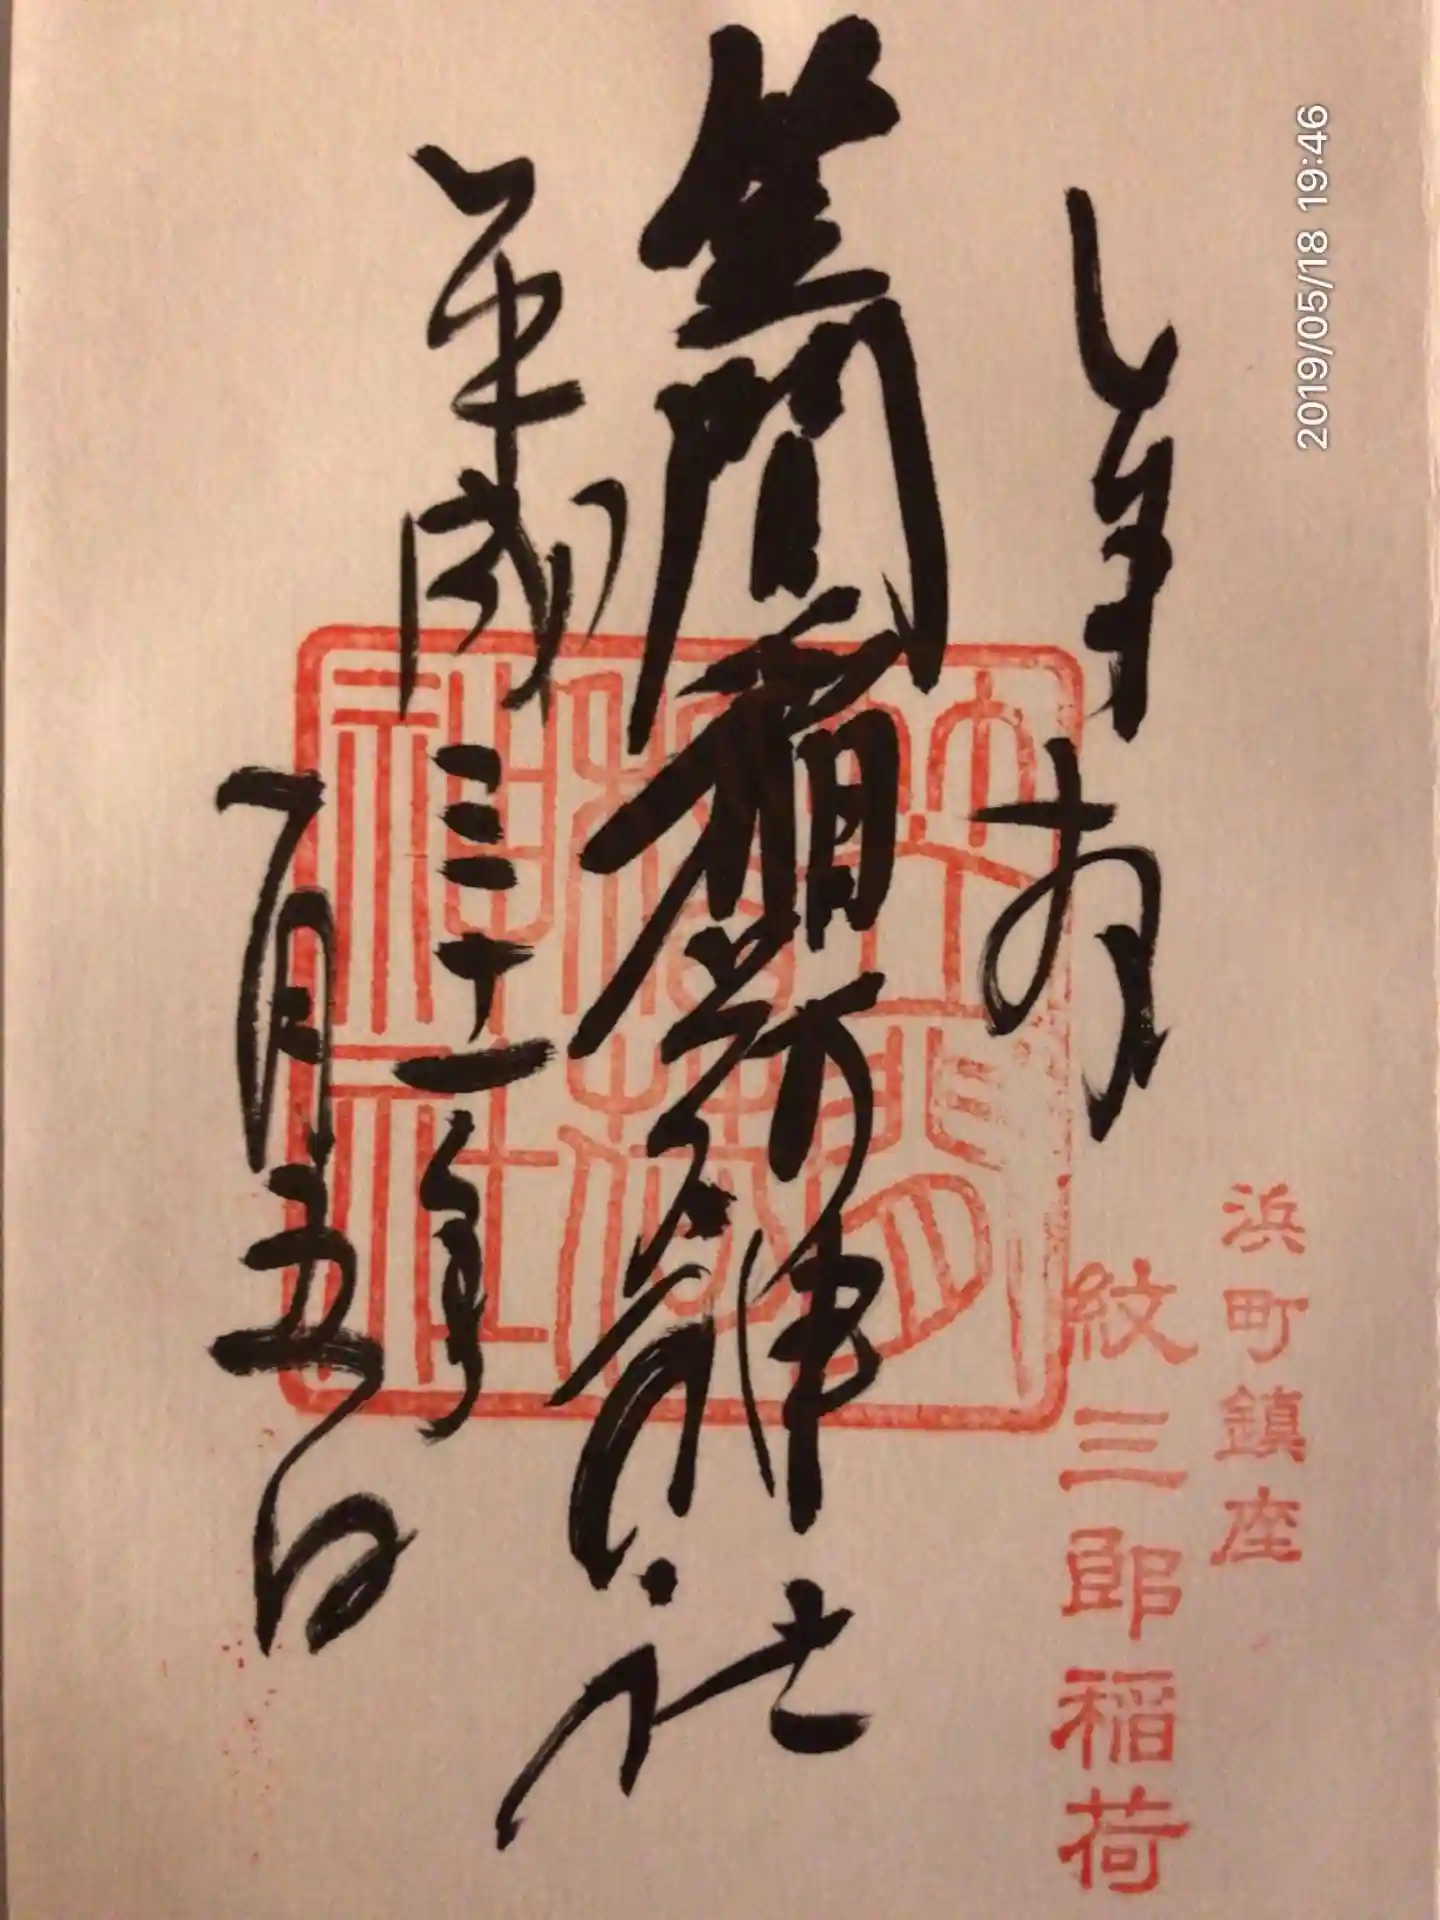 2019/05/18 19:46
浜町鎮座
紋三郎稲荷
笠間稲荷神社
平成三十一年
一月五日
笠間
稲荷
神社